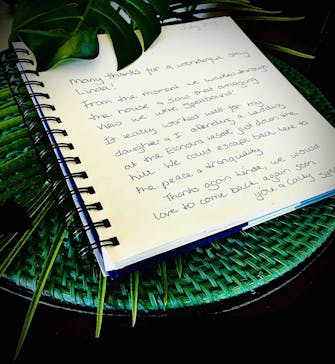 Many thanks for a wonderful stay
Linda!
From the moment we walked through
the house & saw that amazing
view we were spellbound.
It really worked well for my
daughter & I attending a wedding
at the Elanora Hotel just down the
hill. We could escape back here to
the peace & tranquility
Thanks again Linda, we would
love to come back again soon